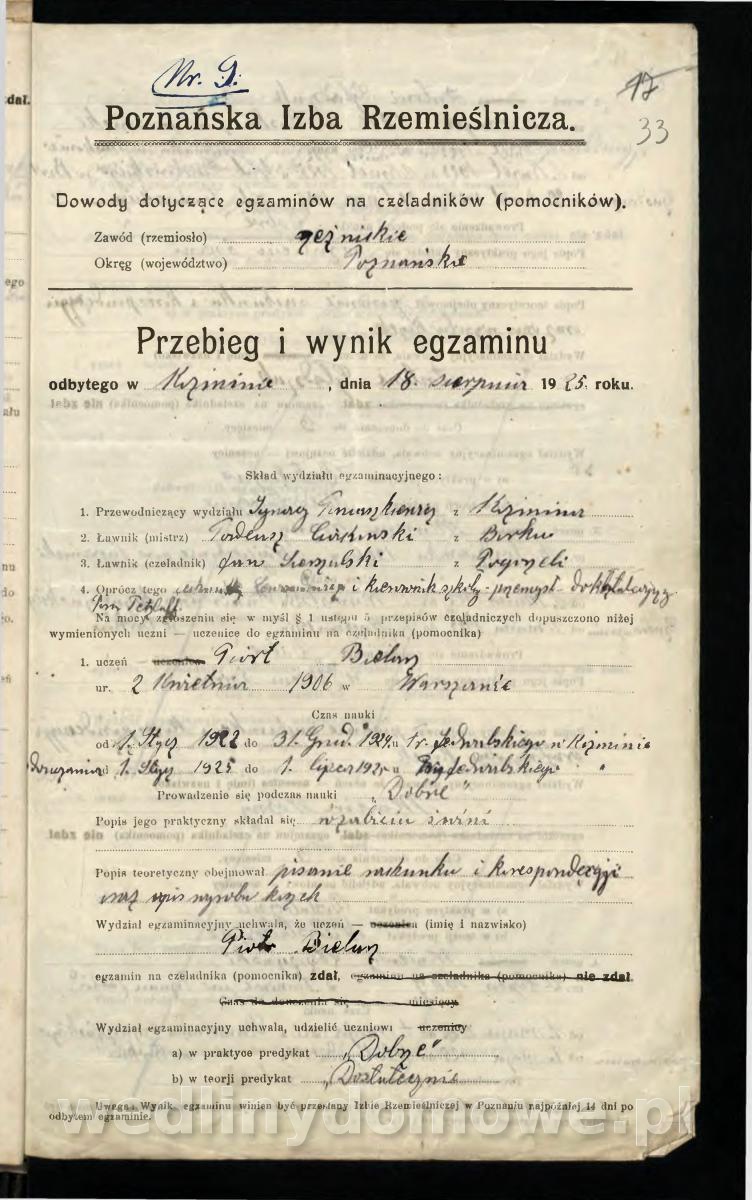 Nr. 9.
17
33
Poznańska Izba Rzemieślnicza.
Dowody dotyczące egzaminów na czeladników (pomocników).
Zawód (rzemiosło) rzeźnickie
Okręg (województwo) Poznańskie
Przebieg i wynik egzaminu
odbytego w Koźminie, dnia 18. sierpnia 1925. roku.
Skład wydziału egzaminacyjnego:
1. Przewodniczący wydziału Ignacy z Koźmina
2. Ławnik (mistrz) Tadeusz z Borku
3. Ławnik (czeladnik) Jan z Pogorzeli
4. Oprócz tego i kierownik szkoły - przemysł - dokształcającej
Na mocy zgłoszenia się w myśl § 1 ustępu 5 przepisów czeladniczych dopuszczono niżej
wymienionych uczni — uczenice do egzaminu na czeladnika (pomocnika)
1. uczeń — uczenica Piotr
ur. 2 kwietnia 1906 w Warszawie
Czas nauki
od 1. Stycz 1922 do 31. Grud. 1924 u w Koźminie
od 1. Stycz 1925 do 1. lipca 1925 u "
Prowadzenie się podczas nauki „Dobre"
Popis jego praktyczny składał się w zabiciu świni
Popis teoretyczny obejmował pisanie rachunku i korespondęcyji
oraz opis wyrobu
Wydział egzaminacyjny uchwala, że uczeń — uczenica (imię i nazwisko)
Piotr
egzamin na czeladnika (pomocnika) zdał, egzaminu na czeladnika (pomocnika) nie zdał.
Czas do douczenia się miesięcy
Wydział egzaminacyjny uchwala, udzielić uczniowi uczenicy
a) w praktyce predykat „Dobrze"
b) w teorji predykat „Dostatecznie
Uwaga: Wynik egzaminu winien być przesłany Izbie Rzemieślniczej w Poznaniu najpóźniej 14 dni po
odbytem egzaminie.
wedlinydomowe.pl